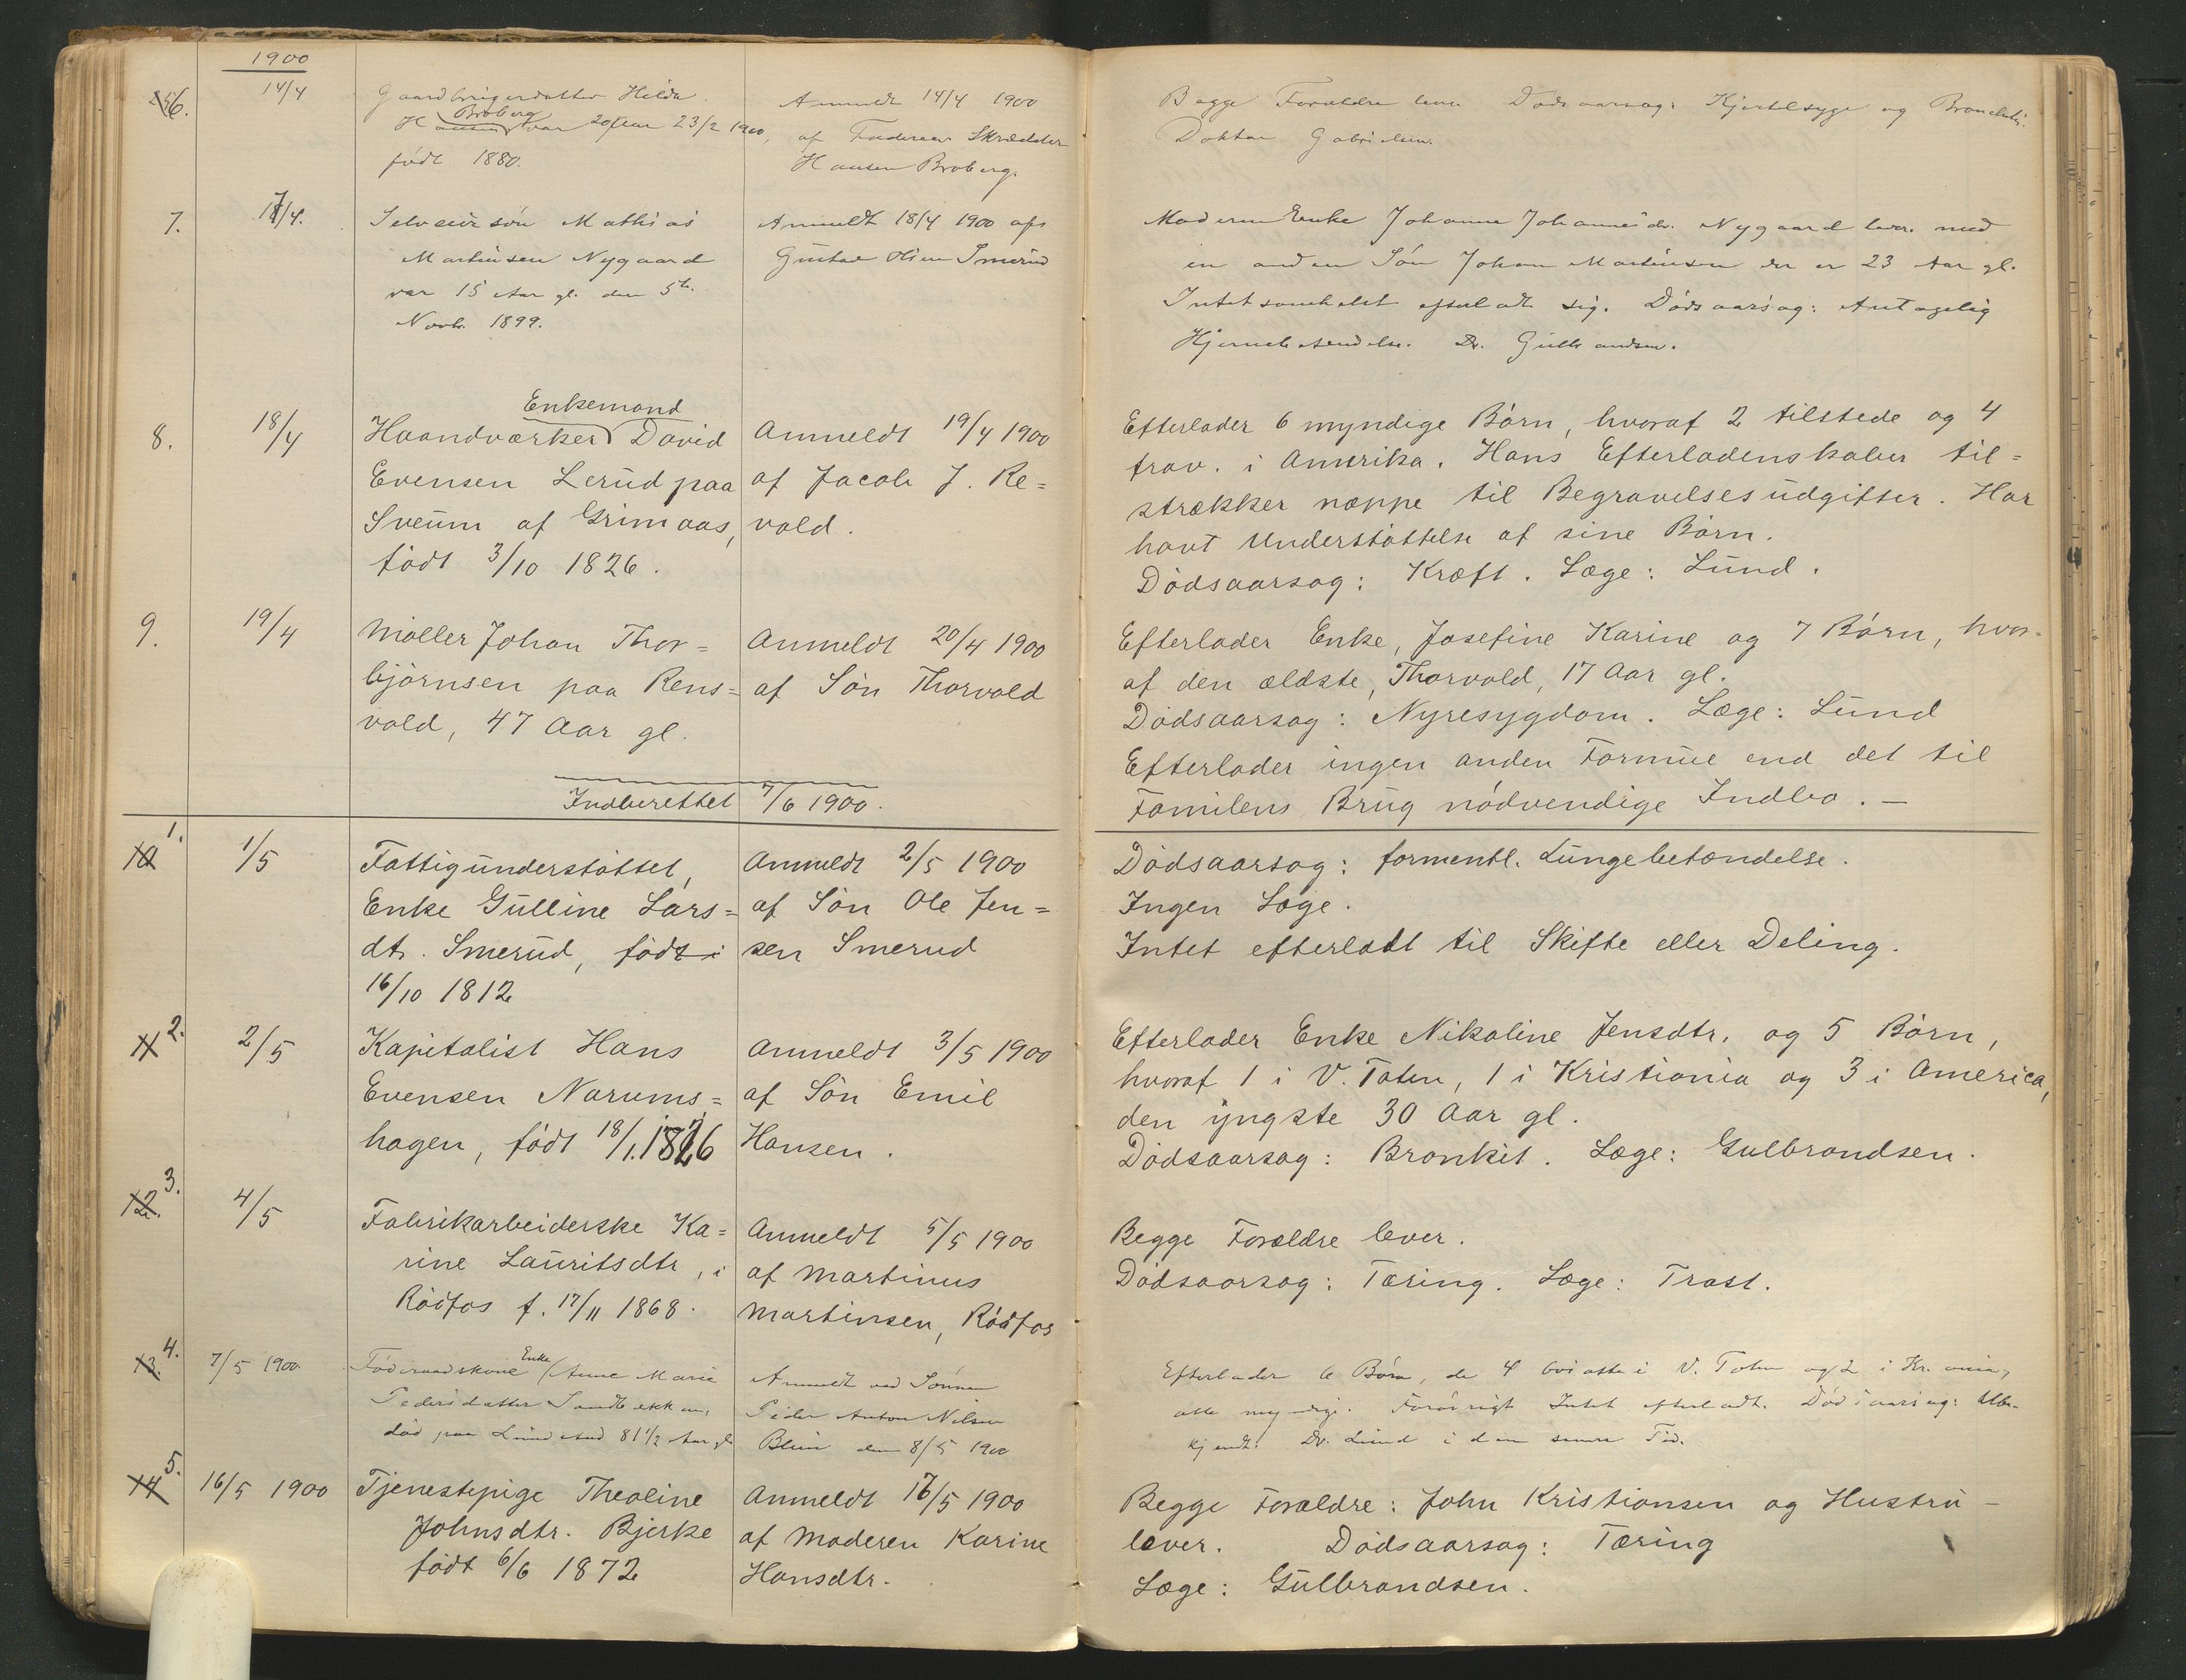 1900
6. 14/4 Gaardbrugerdatter Hilda
Broberg
Hansen var 20 Aar 23/2 1900,
født 1880.
Anmeldt 14/4 1900
af Faderen Skrædder
Hansen Broberg.
Begge Forældre lever Dødsaarsag: Kjertelsyge og Bronchit.
Doktor Gabrielsen.
7. 17/4. Selveiersøn Mathias
Martinsen Nygaard
var 15 Aar gl. den 5te
Novbr. 1899.
Anmeldt 18/4 1900 af
Gustav Olsen Smerud
Moderen Enke Johanne Johannesdr. Nygaard lever med
en anden Søn Johan Martinsen der er 23 Aar gl.
Intetsomhelst efterladt sig. Dødsaarsag: Antagelig
Hjernebetændelse. Dr. Gulbrandsen.
8. 18/4 Enkemand
Haandværker David
Evensen Lerud paa
Sveum af Grimaas,
født 3/10 1826.
Anmeldt 19/4 1900
af Jacob J. Re=
vold.
Efterlader 6 myndige Børn, hvoraf 2 tilstede og 4
frav. i Amerika. Hans Efterladenskaber til=
strækker næppe til Begravelsesudgifter. Har
havt Understøttelse af sine Børn.
Dødsaarsag: Kræft. Læge: Lund.
9. 19/4 Møller Johan Thor=
bjørnsen paa Rens=
vold, 47 Aar gl.
Anmeldt 20/4 1900
af Søn Thorvald
Efterlader Enke, Josefine Karine og 7 Børn, hvor-
af den ældste, Thorvald, 17 Aar gl.
Dødsaarsag: Nyresygdom. Læge: Lund
Efterlader ingen anden Formue end det til
Familens Brug nødvendige Indbo. —
Indberettet 7/6 1900.
10 1. 1/5 Fattigunderstøttet,
Enke Gulline Lars=
dtr. Smerud, født i
16/10 1812
Anmeldt 2/5 1900
af Søn Ole Jen=
sen Smerud
Dødsaarsag: formentl. Lungebetændelse.
Ingen Læge.
Intet efterladt til Skifte eller Deling.
11 2. 2/5 Kapitalist Hans
Evensen Narums=
hagen, født 18/1. 1826
Anmeldt 3/5 1900
af Søn Emil
Hansen.
Efterlader Enke Nikoline Jensdtr. og 5 Børn,
hvoraf 1 i V. Toten, 1 i Kristiania og 3 i America,
den yngste 30 Aar gl.
Dødsaarsag: Bronkit. Læge: Gulbrandsen.
12. 3. 4/5 Fabrikarbeiderske Ka=
rine Lauritsdtr, i
Rødfos f. 17/11 1868.
Anmeldt 5/5 1900
af Martinus
Martinsen, Rødfos
Begge Forældre lever.
Dødsaarsag: Tæring. Læge: Trast.
13. 4. 7/5 1900. Enke
Føderaadskone Anne Marie
Pedersdatter Sandbekken,
død paa Lundstad 81 1/2 Aar gl
Anmeldt ved Sønnen
Peder Anton Nilsen
den 8/5 1900
Efterlader 6 Børn, de 4 bosatte i V. Toten og 2 i Kr.ania,
alle myndige. Forøvrigt Intet efterladt. Dødsaarsag: Ube-
kjendt. Dr. Lund i den senere Tid.
14 5. 16/5 1900 Tjenestepige Theoline
Johnsdtr. Bjerke
født 6/6 1872
Anmeldt 17/5 1900
af Moderen Karine
Hansdtr.
Begge Forældre: John Kristiansen og Hustru —
lever. Dødsaarsag: Tæring
Læge: Gulbrandsen.